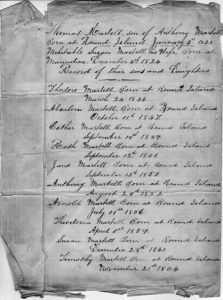 Thomas Martell, son of Anthony Martell
Born at Round Island January 5th
Susan Martell his Wife, Born at
December 4th 1824
Record of their sons and Daughters
Martell Born at Round Island
March 24 1846
Martell Born at Round Island
October 11th 1847
Martell Born at Round Island
September 14th 1849
Martell Born at Round Island
September 15th 1851
Jane Martell Born at Round Island
September 15th 1851
Anthony Martell Born at Round Island
August 29th
Arnold Martell Born at Round Island
July 11th 1856
Theodoria Martell Born at Round Island
April 2nd 1859
Susan Martell Born Round Island
December 25th 1861
Timothy Martell Born at Round Island
November 25th 1864